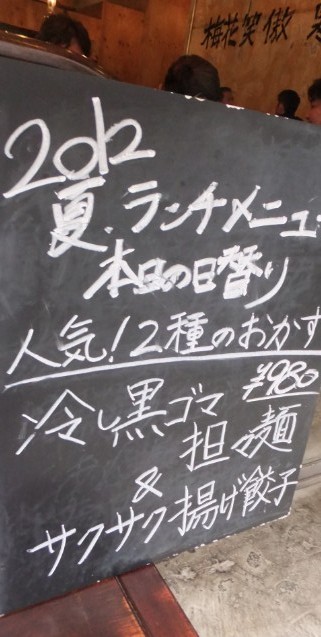 梅花笑傲
2012
夏.ランチメニュー
本日の日替り
人気!2種のおかず
¥980
冷し黒ゴマ
担々麺
&
サクサク揚げ餃子